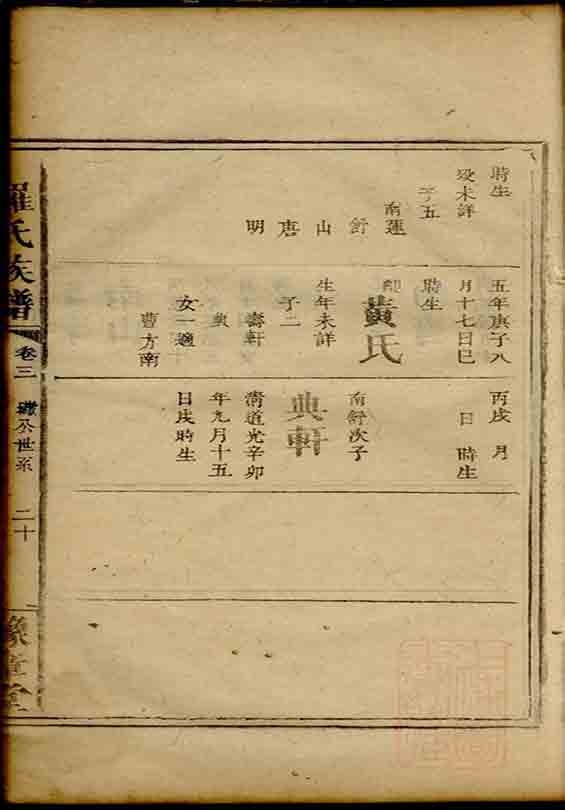 時生
歿未詳
子五
南蓮
舒
山
唐
明
五年庚子八
月十七日巳
時生
配
黃氏
生年未詳
子二
壽軒
典
女一適
曹方南
丙戌 月
日 時生
南舒次子
典軒
清道光辛卯
年九月十五
日戌時生
羅氏族譜
卷三
公世系
二十
豫章堂